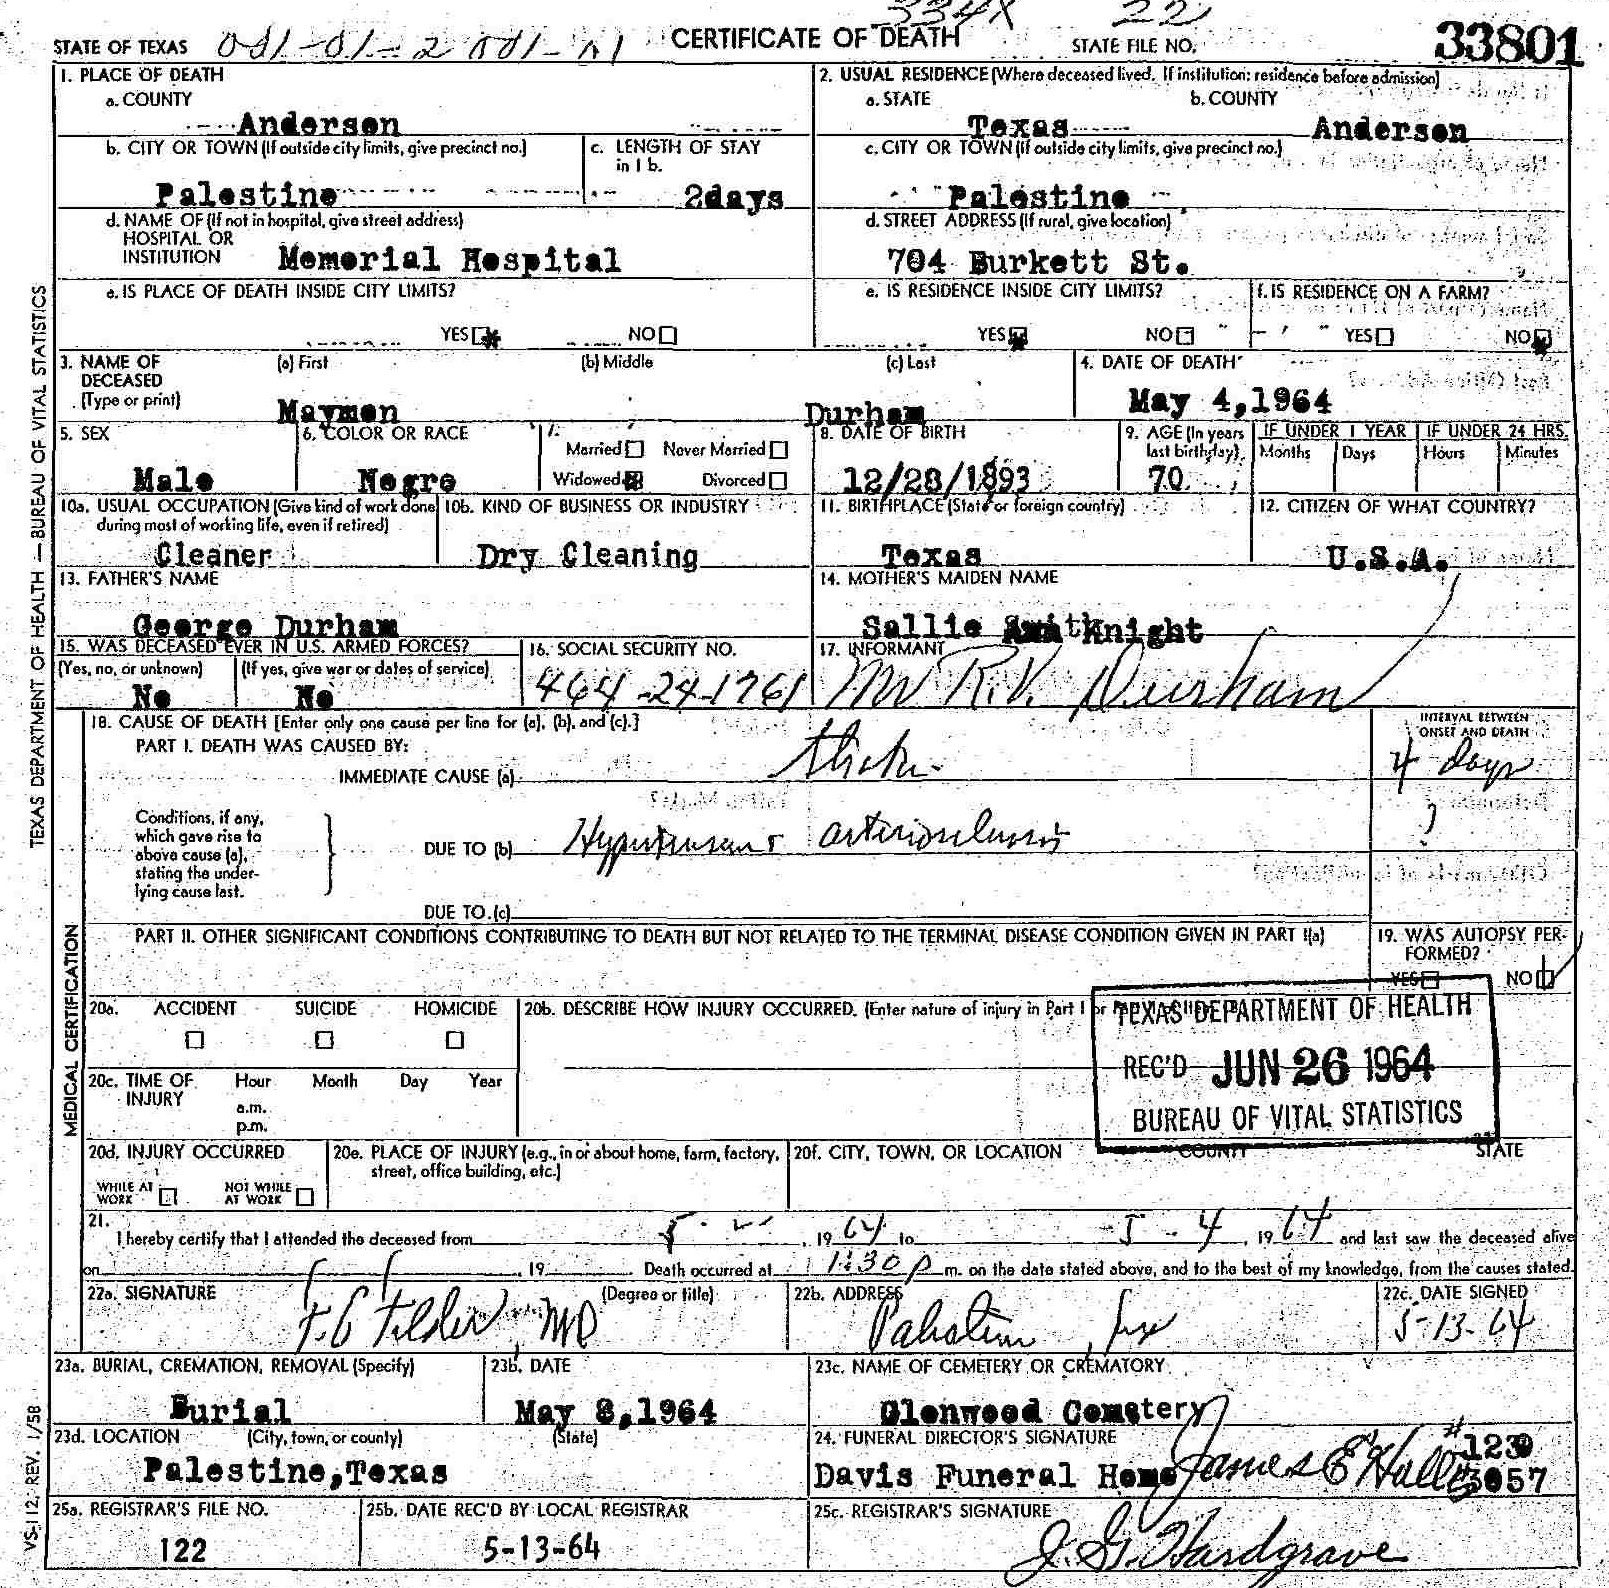 334X 22
STATE OF TEXAS 001-01-2 001-01 CERTIFICATE OF DEATH STATE FILE NO. 33801
1. PLACE OF DEATH
a. COUNTY
Anderson
2. USUAL RESIDENCE (Where deceased lived. If institution: residence before admission)
a. STATE b. COUNTY
Texas Anderson
b. CITY OR TOWN (If outside city limits, give precinct no.)
Palestine
c. LENGTH OF STAY
in 1 b.
2days
c. CITY OR TOWN (If outside city limits, give precinct no.)
Palestine
d. NAME OF (If not in hospital, give street address)
HOSPITAL OR
INSTITUTION Memorial Hospital
d. STREET ADDRESS (If rural, give location)
704 Burkett St.
e. IS PLACE OF DEATH INSIDE CITY LIMITS?
YES NO
e. IS RESIDENCE INSIDE CITY LIMITS?
YES NO
f. IS RESIDENCE ON A FARM?
YES NO
3. NAME OF
DECEASED
(Type or print)
(a) First (b) Middle (c) Last
Maymon Durham
4. DATE OF DEATH
May 4,1964
5. SEX
Male
6. COLOR OR RACE
Negro
7.
Married Never Married
Widowed Divorced
8. DATE OF BIRTH
12/28/1893
9. AGE (In years
last birthday)
70
IF UNDER 1 YEAR IF UNDER 24 HRS.
Months Days Hours Minutes
10a. USUAL OCCUPATION (Give kind of work done
during most of working life, even if retired)
Cleaner
10b. KIND OF BUSINESS OR INDUSTRY
Dry Cleaning
11. BIRTHPLACE (State or foreign country)
Texas
12. CITIZEN OF WHAT COUNTRY?
U.S.A.
13. FATHER'S NAME
George Durham
14. MOTHER'S MAIDEN NAME
Sallie Knight
15. WAS DECEASED EVER IN U.S. ARMED FORCES?
(Yes, no, or unknown) (If yes, give war or dates of service)
No No
16. SOCIAL SECURITY NO.
464-24-1761
17. INFORMANT
Mr R.V. Durham
18. CAUSE OF DEATH [Enter only one cause per line for (a), (b), and (c).]
PART I. DEATH WAS CAUSED BY:
IMMEDIATE CAUSE (a)
INTERVAL BETWEEN
ONSET AND DEATH
4 days
Conditions, if any,
which gave rise to
above cause (a),
stating the under-
lying cause last.
DUE TO (b) arteriosclerosis ?
DUE TO (c)
PART II. OTHER SIGNIFICANT CONDITIONS CONTRIBUTING TO DEATH BUT NOT RELATED TO THE TERMINAL DISEASE CONDITION GIVEN IN PART I(a)
19. WAS AUTOPSY PER-
FORMED?
YES NO
20a. ACCIDENT SUICIDE HOMICIDE
20b. DESCRIBE HOW INJURY OCCURRED. (Enter nature of injury in Part I or
TEXAS DEPARTMENT OF HEALTH
REC'D JUN 26 1964
BUREAU OF VITAL STATISTICS
20c. TIME OF
INJURY
Hour Month Day Year
a.m.
p.m.
20d. INJURY OCCURRED
WHILE AT
WORK
NOT WHILE
AT WORK
20e. PLACE OF INJURY (e.g., in or about home, farm, factory,
street, office building, etc.)
20f. CITY, TOWN, OR LOCATION COUNTY STATE
21.
I hereby certify that I attended the deceased from 5- , 1964 to 5-4, 1964 and last saw the deceased alive
on , 19 . Death occurred at 1:30 p m. on the date stated above, and to the best of my knowledge, from the causes stated.
22a. SIGNATURE (Degree or title)
MD
22b. ADDRESS
Palestine, Tex
22c. DATE SIGNED
5-13-64
23a. BURIAL, CREMATION, REMOVAL (Specify)
Burial
23b. DATE
May 8,1964
23c. NAME OF CEMETERY OR CREMATORY
Glenwood Cemetery
23d. LOCATION (City, town, or county) (State)
Palestine,Texas
24. FUNERAL DIRECTOR'S SIGNATURE
Davis Funeral Home James E Hall #3057
25a. REGISTRAR'S FILE NO.
122
25b. DATE REC'D BY LOCAL REGISTRAR
5-13-64
25c. REGISTRAR'S SIGNATURE
J. G. Hardgrave
TEXAS DEPARTMENT OF HEALTH — BUREAU OF VITAL STATISTICS
MEDICAL CERTIFICATION
VS-112, REV. 1/58